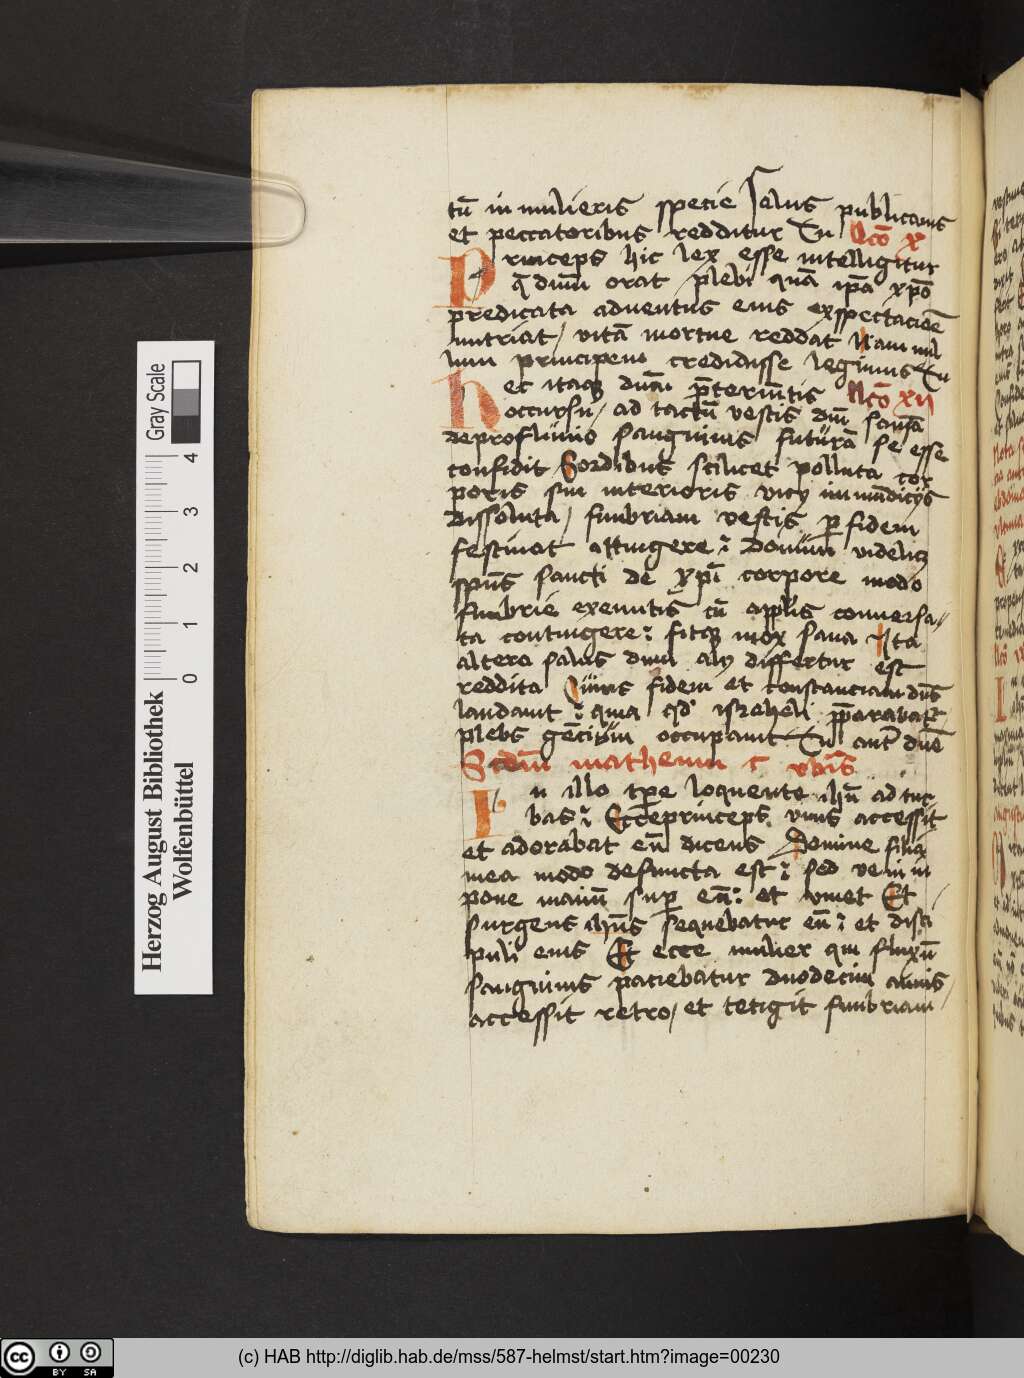 tū in mulieris specie Salus publicanis
et peccatoribus redditur Tu Lcō xj
Princeps hic lex esse intelligitur
q̄ dnm̄ orat plebi quā ip̄a xp̄o
predicata aduentus eius exspectacioē
nutriat / vitā mortue reddat Nam nul
lum principem credidisse legimus Tu
hec itaq; dnāi p̄teriūtis Lcō xij
occursu / ad tactū vestis dnī sanſā
deprofluuio sanguinis futurā se esse
confidit Sordibus scilicet polluta cor
poris sui interioris vicij inmūdicijs
dissoluta / fimbriam vestis p fidem
festinat attingere: donum videlicz
sp̄us sancti de xp̄i corpore modo
fimbrie exeuntis cū apl̄is conuersa/
ta contingere: fitq; mox sana Ita
altera salus dum alij differtur est
reddita Cuius fidem et constanciam dn̄s
laudauit: quia qd' israheli p̄parabat~
plebs gēciūm occupauit Tu aut' dnē
Scdm̄ matheum c vbīs
In illo tpe loquente ihū ad tur
bas: Ecce princeps vnus accessit
et adorabat eū dicens Domine filia
mea modo defuncta est: sed veni in
pone manū sup eā: et viuet Et
surgens ihūs sequebatur eū: et disci
puli eius Et ecce mulier qui fluxū
sanguinis paciebatur duodecim annis
accessit retro / et tetigit fimbriam
Herzog August Bibliothek
Wolfenbüttel
Gray Scale
0 1 2 3 4
cc BY SA
(c) HAB http://diglib.hab.de/mss/587-helmst/start.htm?image=00230